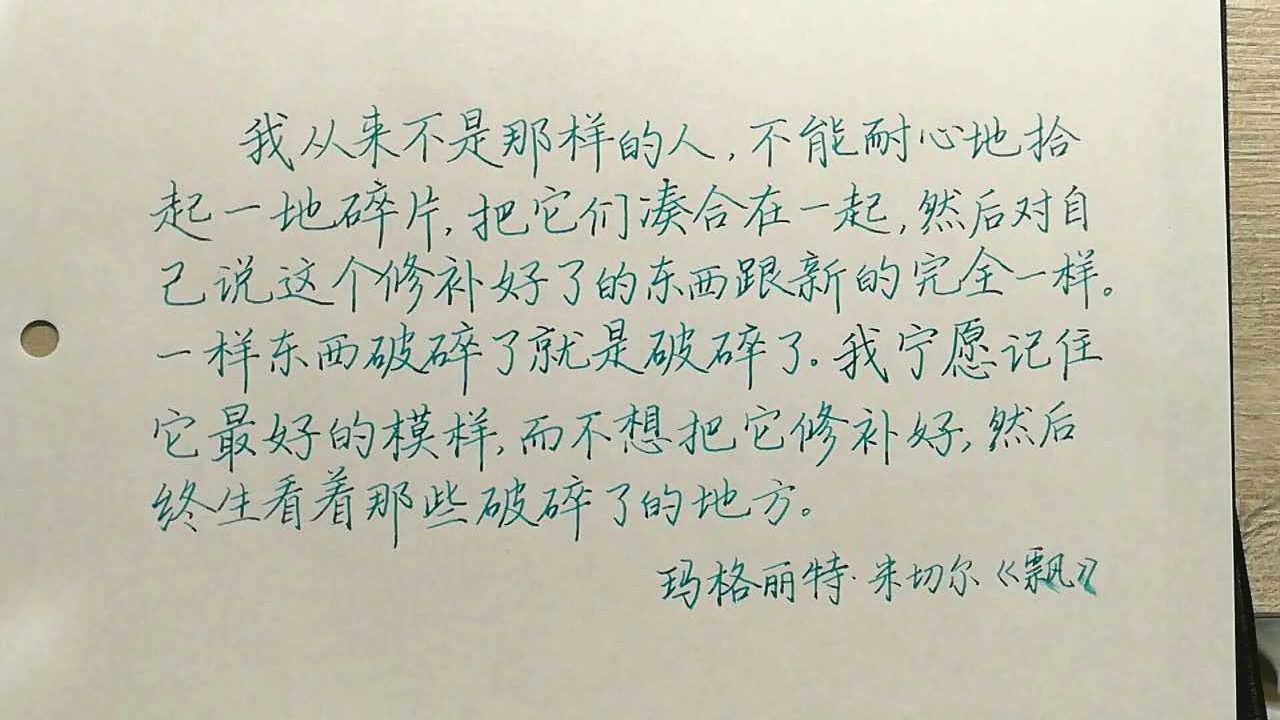 我从来不是那样的人,不能耐心地拾
起一地碎片,把它们凑合在一起,然后对自
己说这个修补好了的东西跟新的完全一样。
一样东西破碎了就是破碎了。我宁愿记住
它最好的模样,而不想把它修补好,然后
终生看着那些破碎了的地方。
玛格丽特·米切尔《飘》